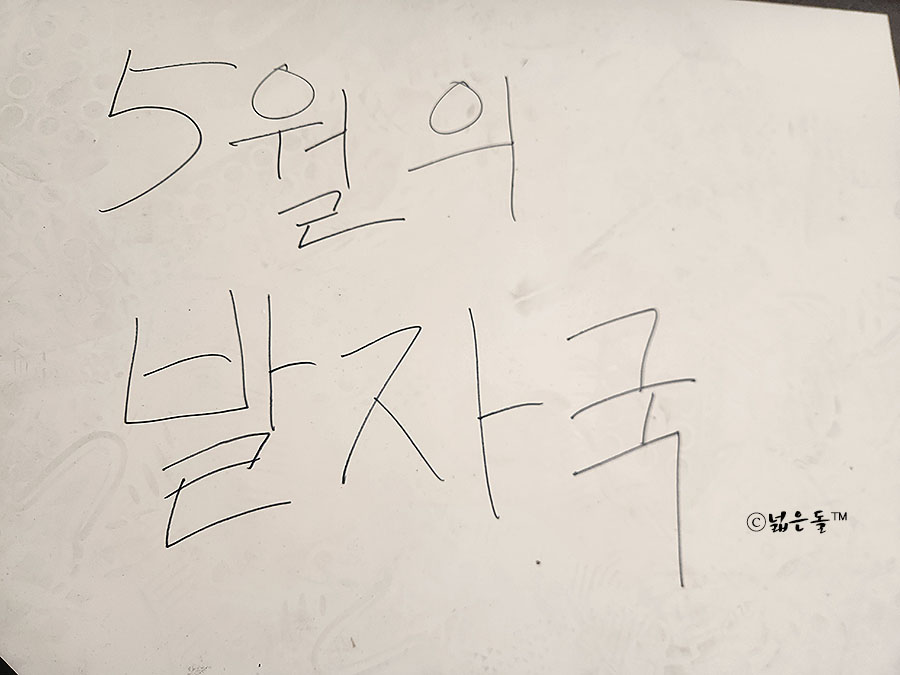 5월의
발자국
ⓒ넓은돌™